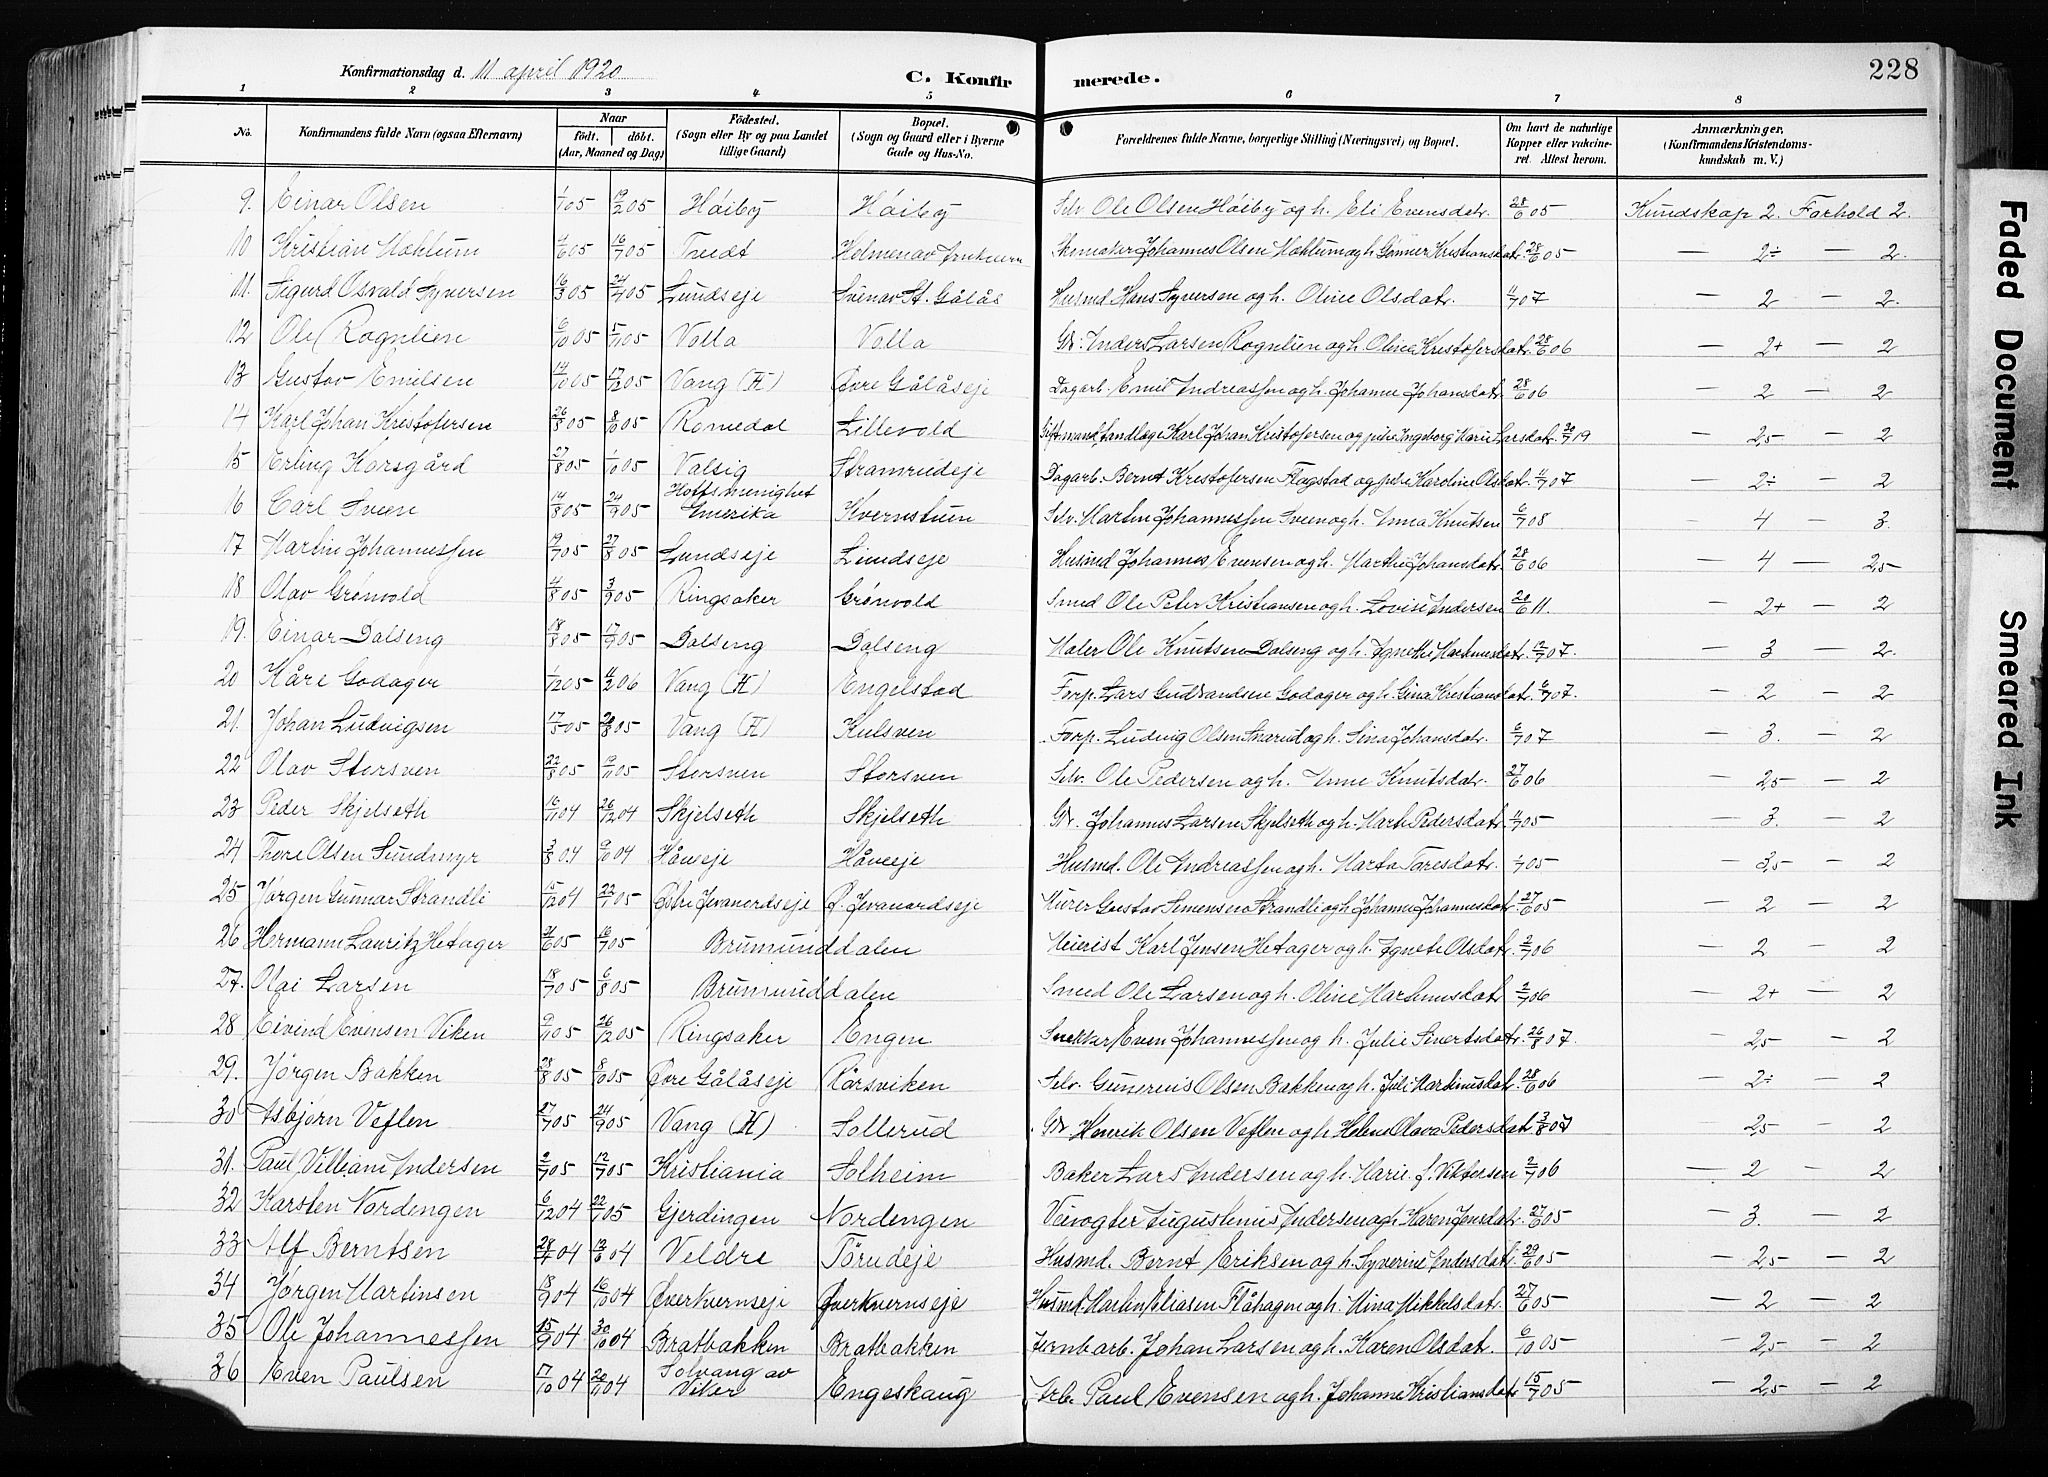 Konfirmationsdag d. 11 april 1920 C. Konfirmerede. 228
1 2 3 4 5 6 7 8
No. Konfirmandens fulde Navn (ogsaa Efternavn) Naar født. døbt. (Aar, Maaned og Dag) Fødested. (Sogn eller By og paa Landet tillige Gaard) Bopæl. (Sogn og Gaard eller i Byerne Gade og Hus-No. Forældrenes fulde Navne, borgerlige Stilling (Næringsvei) og Bopæl. Om havt de naturlige Kopper eller vakcineret. Attest herom. Anmærkninger, (Konfirmandens Kristendomskundskab m. V.)
9. Einar Olsen 1/1 05 19/2 05 Høiby Høiby Selv. Ole Olsen Høiby og h. Eli Evensdatr. 28/6 05 Kundskap 2. Forhold 2.
10 Kristian Mæhlum 4/6 05 16/7 05 Tredt Holmen av Skomaker Johannes Olsen Mæhlum og h. Kristiansdatr. 28/6 05 — 2÷ — 2.
11. Sigurd Osvald Syversen 16/3 05 24/4 05 Lundseje St. Gålås Husmd Hans Syversen og h. Oline Olsdatr. 11/7 07 — 2 — 2.
12 Ole Rognlien 6/10 05 5/11 05 Volla Volla Gbr. Anders Larsen Rognlien og h. Olina Kristofersdatr. 28/6 06 — 2+ — 2
13 Gustav Emilsen 14/10 05 17/12 05 Vang (H) Øvre Gålåseje Dagarb. Emil Andreassen og h. Johanne Johansdatr. 28/6 06 — 2 — 2
14 Karl Johan Kristofersen 26/8 05 8/10 05 Romedal Lillevold Gift mand, tandlæge Karl Johan Kristofersen og pike Ingeborg Marie Larsdatr. 20/7 19 — 2,5 — 2
15 Erling Korsgård 27/8 05 1/10 05 Valsig Stramrudeje Dagarb. Bernt Kristofersen Flagstad og pike Karoline Olsdatr. 11/7 07 — 2÷ — 2
16 Carl Sveen 14/8 05 24/9 05 Hoffsmenighet Amerika Kvernstuen Selv. Martin Johannessen Sveen og h. Anna Knutsen 6/7 08 — 4 — 3.
17 Martin Johannessen 19/7 05 27/8 05 Lundseje Lundseje Husmd Johannes Evensen og h. Marthe Johansdatr. 28/6 06 — 4 — 2,5
18 Olav Grønvold 4/8 05 3/9 05 Ringsaker Grønvold Smed Ole Peter Kristiansen og h. Lovise Andersen 20/6 11. — 2+ — 2
19. Einar Dalseng 18/8 05 17/9 05 Dalseng Dalseng Maler Ole Knutsen Dalseng og h. Agnethe Martinusdatr. 12/7 07. — 3 — 2.
20 Kåre Godager 1/12 05 11/2 06 Vang (H) Engelstad Forp. Lars Gudbrandsen Godager og h. Gina Kristiansdatr. 6/7 07. — 2 — 2
21. Johan Ludvigsen 17/5 05 20/8 05 Vang (H) Kulsven Forp. Ludvig Olsen Snarud og h. Sina Johansdatr. 6/7 07 — 3. — 2
22 Olav Storsven 22/8 05 19/11 05 Storsven Storsven Selv. Ole Pedersen og h. Anne Knutsdatr. 27/6 06 — 2,5 — 2
23 Peder Skjelseth 16/11 04 26/12 04 Skjelseth Skjelseth Gbr. Johannes Larsen Skjelseth og h. Marte Pedersdatr. 4/7 05 — 3. — 2
24 Thore Olsen Sundmyr 3/8 04 9/10 04 Håveeje Håveeje Husmd. Ole Andreassen og h. Marta Toresdatr. 1/7 05 — 3,5 — 2
25 Jørgen Gunnar Strandli 15/12 04 22/1 05 Østre Jevanordseje Ø. Jevanordseje Murer Gustav Simensen Strandli og h. Johanne Johannesdatr. 27/6 05 — 2 — 2
26 Hermann Lauritz Hetager 21/6 05 16/7 05 Brumunddalen Meierist Karl Jensen Hetager og h. Agnete Olsdatr. 2/7 06 — 2 — 2
27. Olai Larsen 18/7 05 6/8 05 Brumunddalen Smed Ole Larsen og h. Oline Martinusdatr 2/7 06 — 2+ — 2
28 Eivind Evensen Viken 9/11 05 26/12 05 Ringsaker Engen Snekker Even Johannessen og h. Julie Sivertsdatr. 26/8 07. — 2,5 — 2
29. Jørgen Bakken 28/8 05 8/10 05 Øvre Gålåseje Korsviken Selv. Gunerius Olsen Bakken og h. Juli Martinusdatr. 28/6 06 — 2÷ — 2
30 Asbjørn Veflen 27/7 05 24/9 05 Vang (H) Sollerud Gbr Henrik Olsen Veflen og h. Helene Olava Pedersdatr. 3/8 07 — 2,5 — 2
31. Paul Villiam Andersen 2/7 05 12/7 05 Kristiania Solheim Baker Lars Andersen og h. Marie f. Viktorsen 2/7 06 — 2 — 2
32 Karsten Nordengen 6/12 04 22/1 05 Gjerdingen Nordengen Veivogter Augustinus Andersen og h. Karen Jensdatr. 27/6 05 — 3. — 2
33 Alf Berntsen 28/4 04 12/6 04 Veldre Tørudeje Husmd. Bernt Eriksen og h. Syverine Andersdatr. 29/6 05 — 2,5 — 2
34 Jørgen Martinsen 18/9 04 16/10 04 Øverkvernseje Øverkvernseje Husmd. Martin Eliasen Flåhagen og h. Mina Mikkelsdatr. 27/6 05 — 2 — 2
35 Ole Johannessen 15/9 04 30/10 04 Bratbakken Bratbakken Jernb.arb. Johan Larsen og h. Karen Olsdatr. 6/10 05 — 2,5 — 2
36 Even Paulsen 17/10 04 20/11 04 Solvang av Viker Engeskaug Arb. Paul Evensen og h. Johanne Kristiansdatr 15/7 05 — 2,5 — 2
Faded Document
Smeared Ink